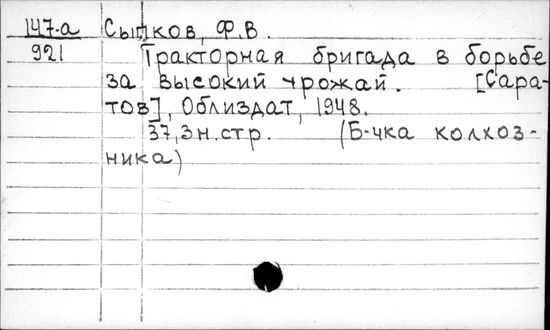 147-а Сыпков, Ф.В.
921 Тракторная бригада в борьбе
за высокий урожай. [Сара-
тов], Облиздат, 1948.
37,3н.стр. (Б-чка колхоз-
ника)